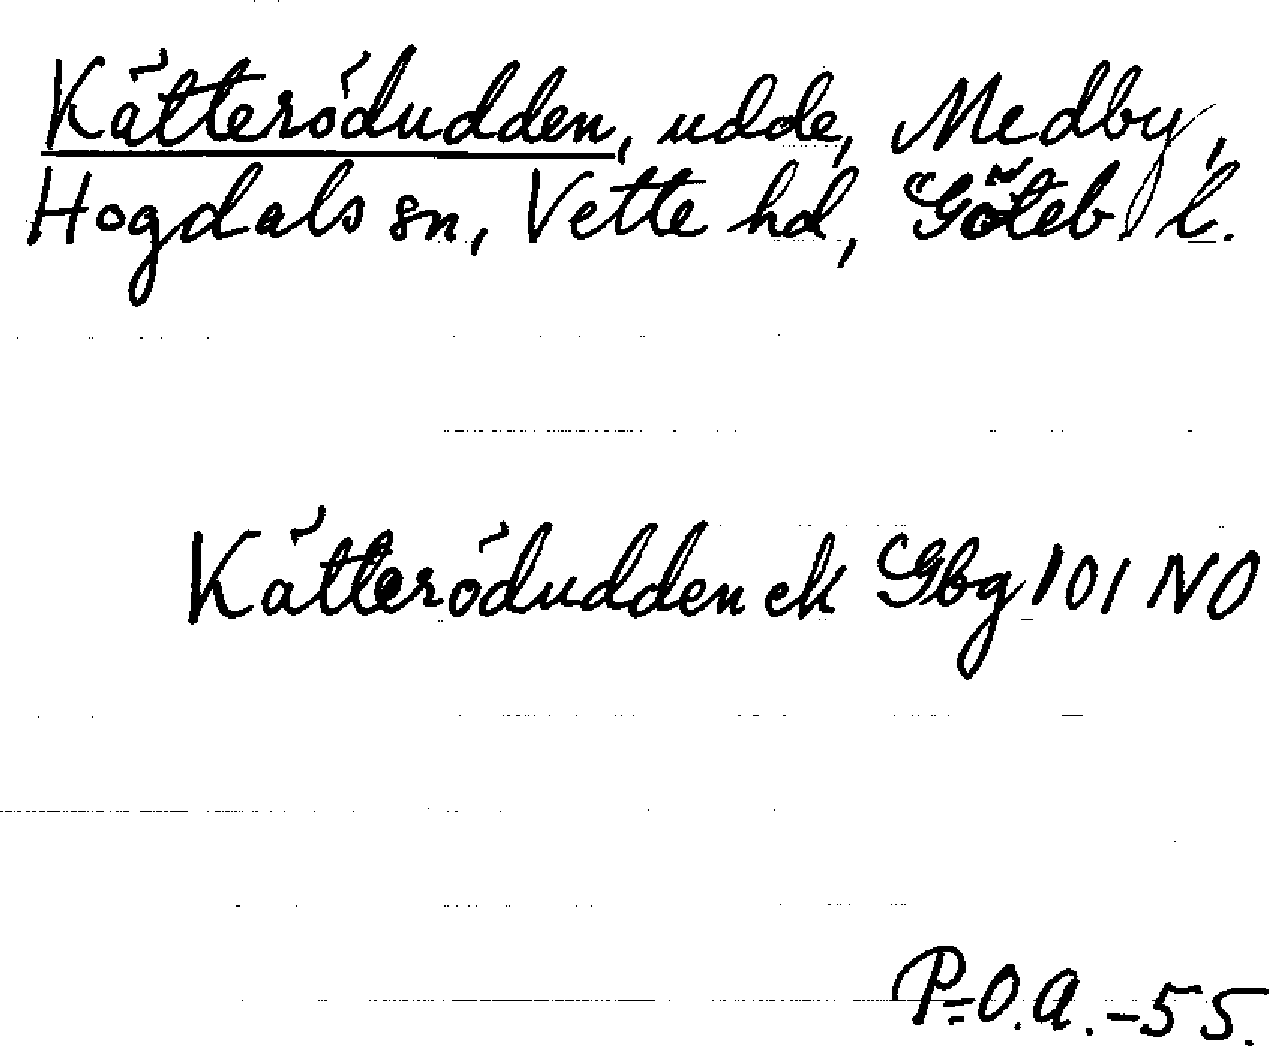 Kätterödudden, udde, Medby,
Hogdals sn, Vette hd, Göteb l.
Kätterödudden ek Gbg 101 NO
P.-O.A.-55.